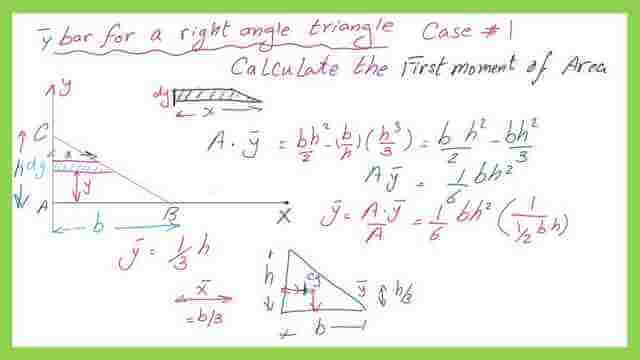 ȳ bar for a right angle triangle Case #1
Calculate the First moment of Area
y
dy
x
C
x
h dy
y
A B X
b
A·ȳ = bh²/2 - (b/h)(h³/3) = b/2 h² - bh²/3
Aȳ = 1/6 bh²
ȳ = A·ȳ/A = 1/6 bh² (1/(1/2 bh))
ȳ = 1/3 h
x̄
= b/3
h
cg
ȳ h/3
b